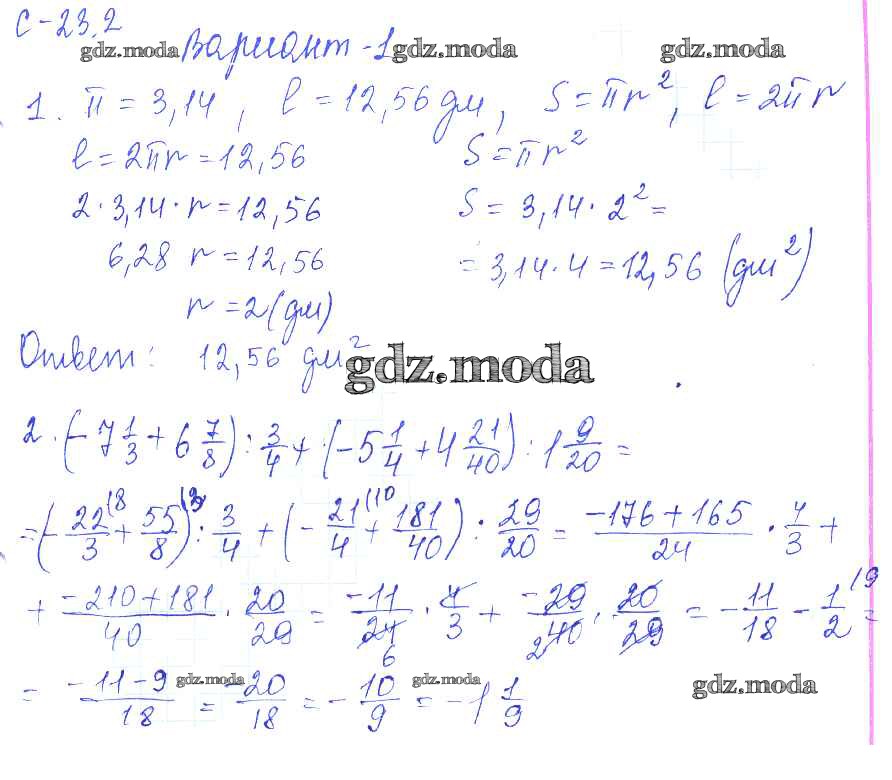 С-23.2
gdz.moda Вариант-1 gdz.moda gdz.moda
1. π = 3,14, l = 12,56 дм, S = πr², l = 2πr
l = 2πr = 12,56 S = πr²
2 · 3,14 · r = 12,56 S = 3,14 · 2² =
6,28 r = 12,56 = 3,14 · 4 = 12,56 (дм²)
r = 2 (дм)
Ответ: 12,56 дм²
gdz.moda
2. (-7 1/3 + 6 7/8) : 3/4 + (-5 1/4 + 4 21/40) : 1 9/20 =
= (-22/3 (8 + 55/8 (3) : 3/4 + (-21/4 (10 + 181/40) : 29/20 = (-176 + 165)/24 · 4/3 +
+ (-210 + 181)/40 · 20/29 = -11/24 6 · 4/3 + -29/40 2 · 20/29 = -11/18 - 1/2 (9 =
= (-11 - 9)/18 gdz.moda = -20/18 = -10/9 gdz.moda = -1 1/9
gdz.moda